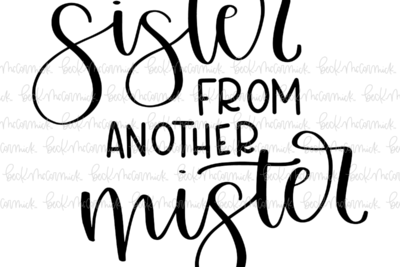 sister
FROM
ANOTHER
mister